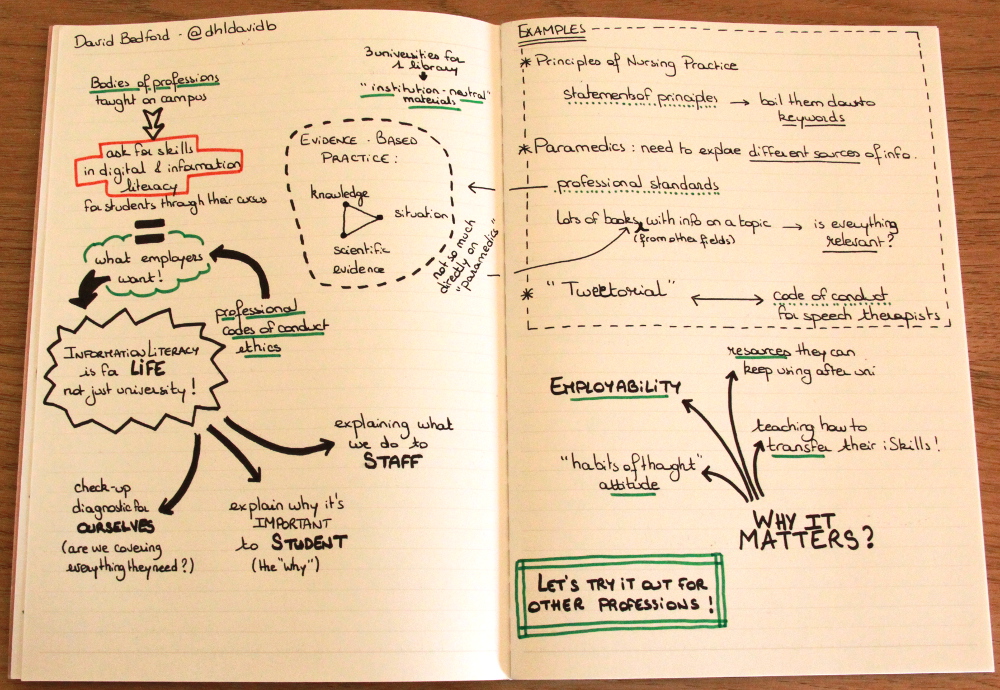 David Bedford - @dhldavidb
Bodies of professions
taught on campus
ask for skills
in digital & information
literacy
for students through their cursus
=
what employers
want!
professional
codes of conduct
ethics
INFORMATION LITERACY
is for LIFE
not just university!
check-up
diagnostic for
OURSELVES
(are we covering
everything they need?)
explain why it's
IMPORTANT
to STUDENT
(the "why")
explaining what
we do to
STAFF
3 universities for
1 library
"institution-neutral"
materials
EVIDENCE-BASED
PRACTICE:
knowledge
situation
scientific
evidence
not so much
directly on
"paramedics"
EXAMPLES
* Principles of Nursing Practice
statements of principles → boil them down to
keywords
* Paramedics: need to explore different sources of info.
professional standards
Lots of books with info on a topic → is everything
(from other fields) relevant?
* "Tweetorial" ↔ code of conduct
for speech therapists
EMPLOYABILITY
resources they can
keep using after uni
teaching how to
transfer their iSkills!
"habits of thought"
attitude
WHY IT
MATTERS?
LET'S TRY IT OUT FOR
OTHER PROFESSIONS!